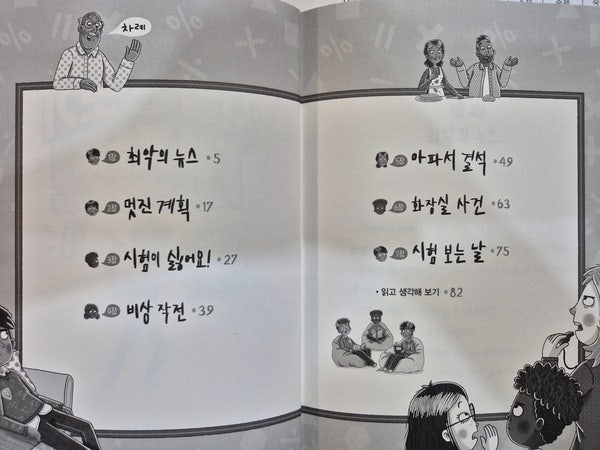 차례
1장 최악의 뉴스 • 5
2장 멋진 계획 • 17
3장 시험이 싫어요! • 27
4장 비상 작전 • 39
5장 아파서 결석 • 49
6장 화장실 사건 • 63
7장 시험 보는 날 • 75
• 읽고 생각해 보기 • 82